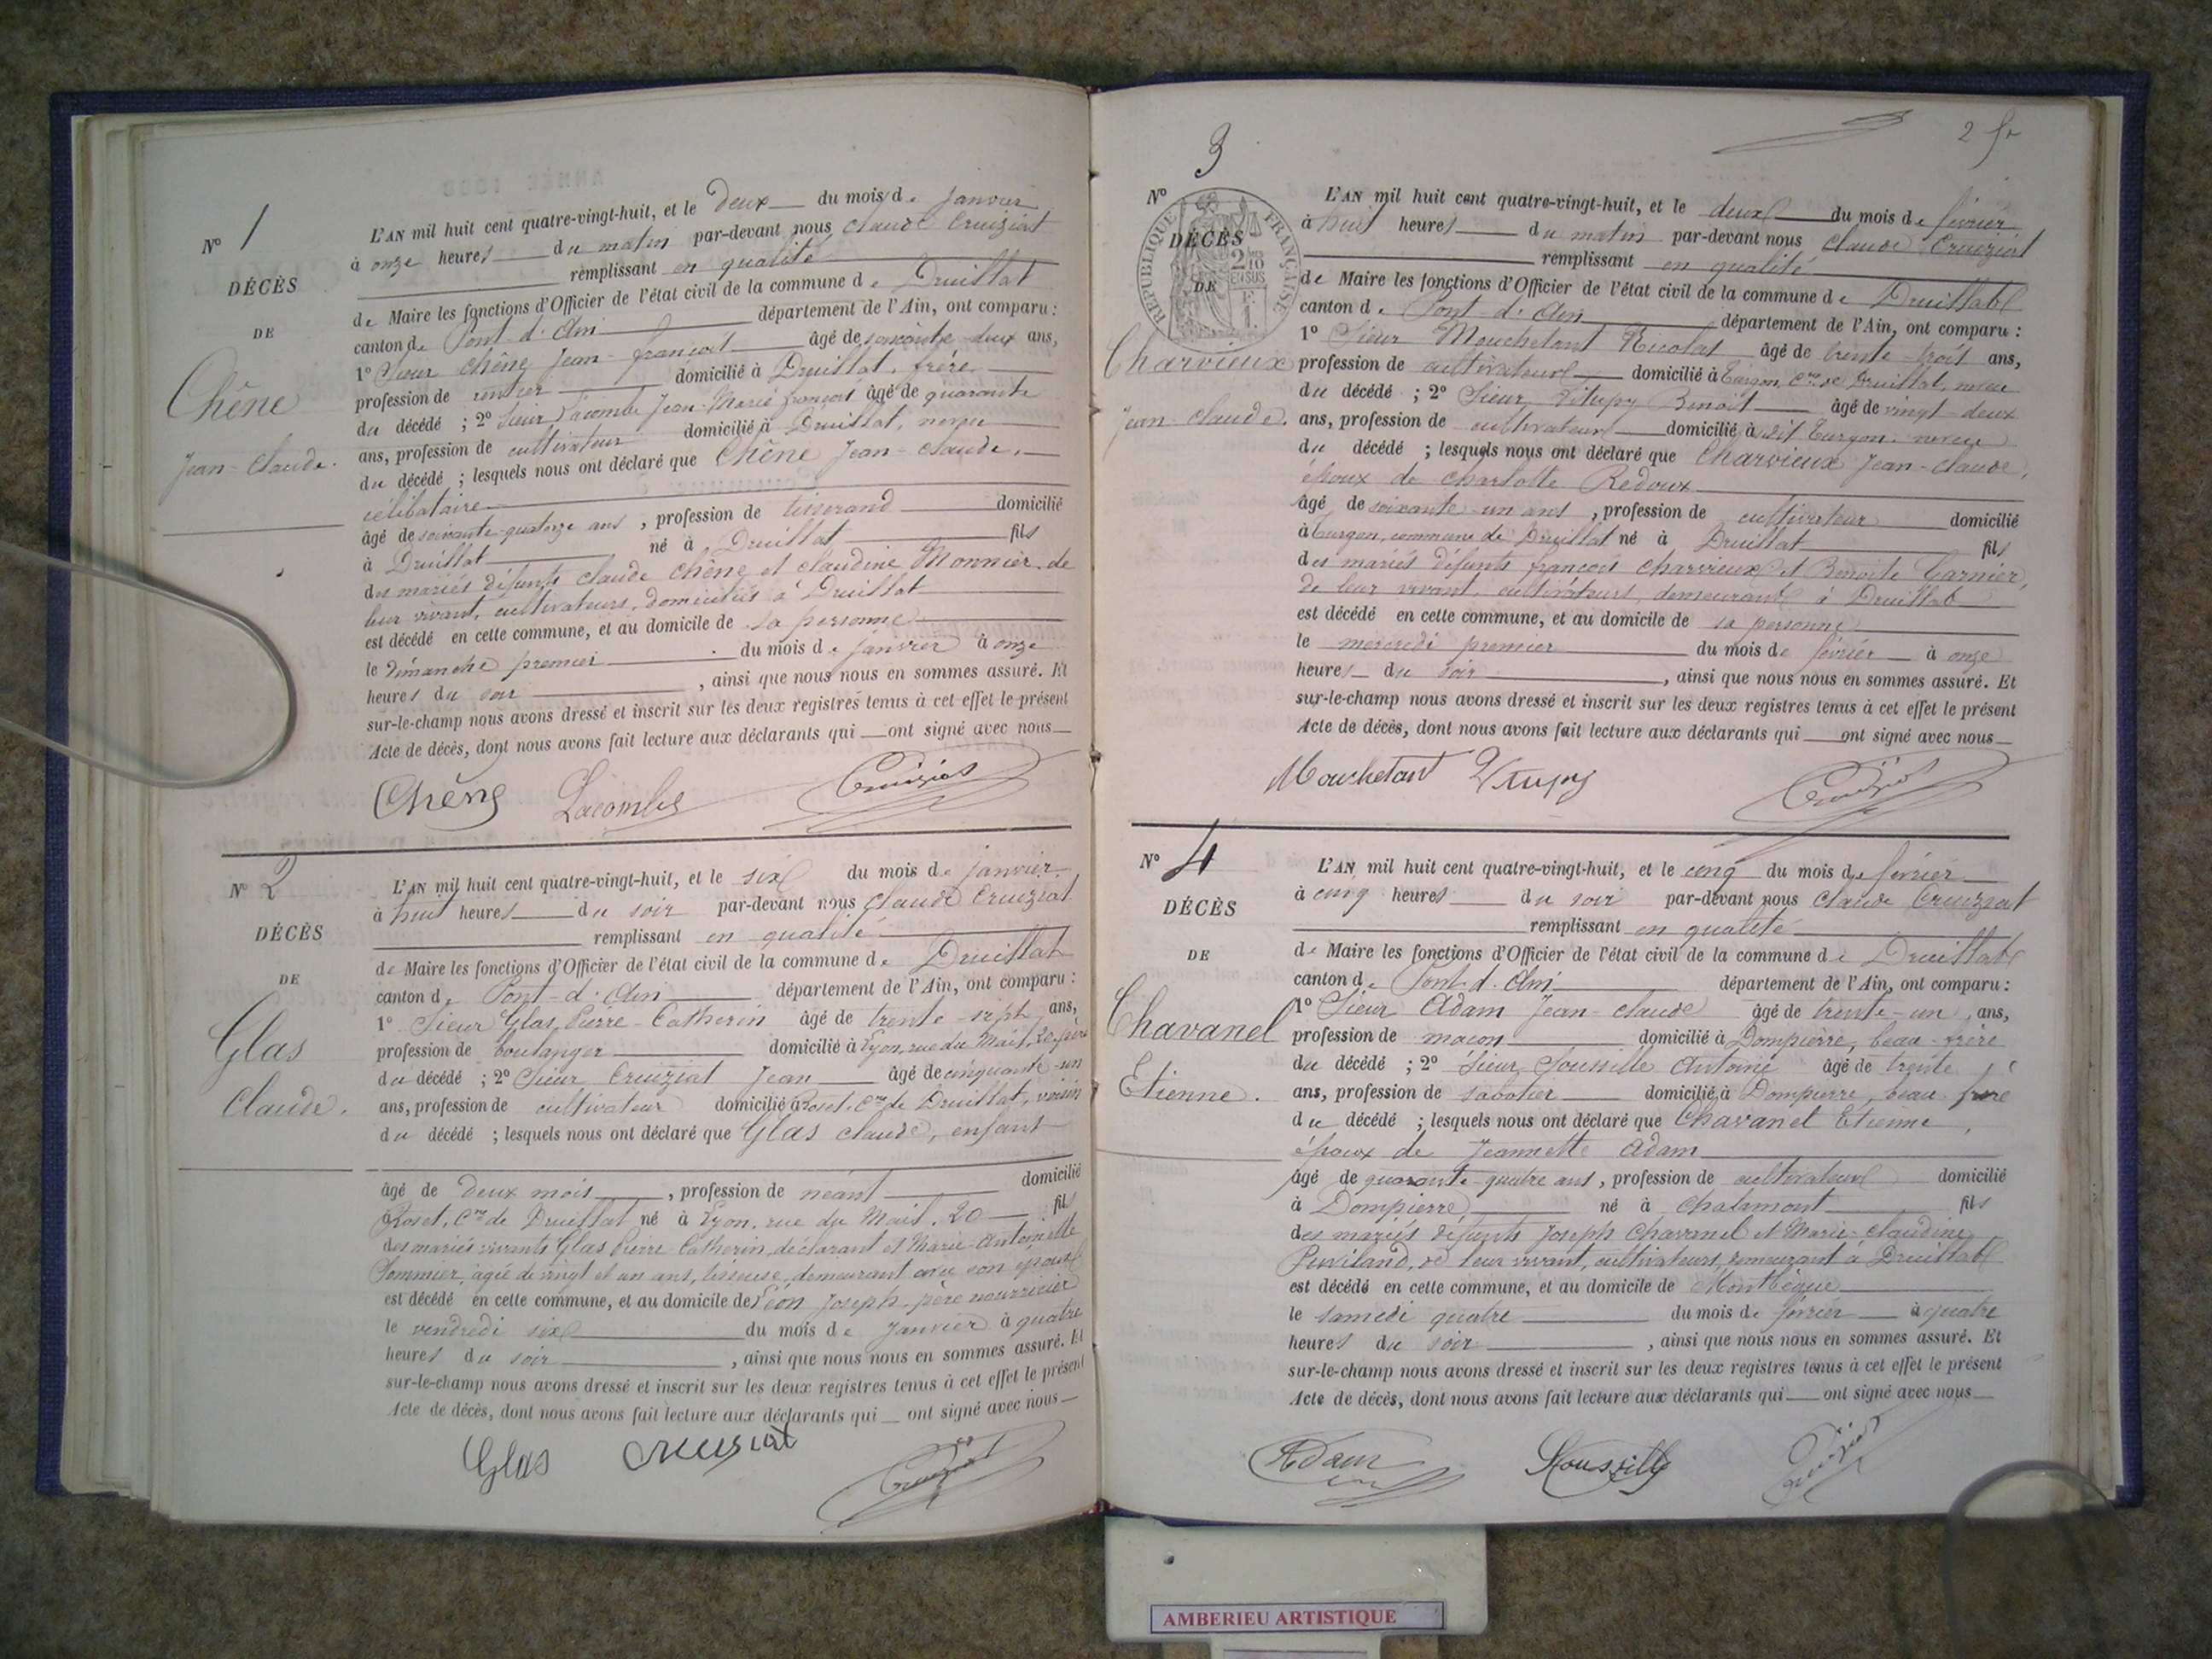 N° 1
DÉCÈS
DE
Chêne
Jean-Claude.
L'AN mil huit cent quatre-vingt-huit, et le deux du mois de Janvier
à onze heures du matin par-devant nous Claude Cruiziat
remplissant en qualité
de Maire les fonctions d'Officier de l'état civil de la commune de Druillat
canton de Pont-d'Ain département de l'Ain, ont comparu :
1° Sieur Chêne Jean-François âgé de soixante-deux ans,
profession de rentier domicilié à Druillat, frère
du décédé ; 2° Sieur Lacombe Jean-Marie François âgé de quarante
ans, profession de cultivateur domicilié à Druillat, neveu
du décédé ; lesquels nous ont déclaré que Chêne Jean-Claude,
célibataire
âgé de soixante-quatorze ans, profession de tisserand domicilié
à Druillat né à Druillat fils
des mariés défunts Claude Chêne et Claudine Monnier, de
leur vivant, cultivateurs, domiciliés à Druillat
est décédé en cette commune, et au domicile de sa personne
le dimanche premier du mois de janvier à onze
heures du soir, ainsi que nous nous en sommes assuré. Et
sur-le-champ nous avons dressé et inscrit sur les deux registres tenus à cet effet le présent
Acte de décès, dont nous avons fait lecture aux déclarants qui ont signé avec nous
Chêne Lacombe Cruiziat
N° 2
DÉCÈS
DE
Glas
Claude.
L'AN mil huit cent quatre-vingt-huit, et le six du mois de janvier
à huit heures du soir par-devant nous Claude Cruiziat
remplissant en qualité
de Maire les fonctions d'Officier de l'état civil de la commune de Druillat
canton de Pont-d'Ain département de l'Ain, ont comparu :
1° Sieur Glas Pierre-Catherin âgé de trente-sept ans,
profession de boulanger domicilié à Lyon, rue du Mail, 20, père
du décédé ; 2° Sieur Cruiziat Jean âgé de cinquante-un
ans, profession de cultivateur domicilié à Roset, Cne de Druillat, voisin
du décédé ; lesquels nous ont déclaré que Glas Claude, enfant
âgé de deux mois, profession de néant domicilié
à Roset, Cne de Druillat né à Lyon, rue du Mail, 20 fils
des mariés vivants Glas Pierre Catherin, déclarant et Marie-Antoinette
Sommier, agée de vingt et un ans, tisseuse, demeurant avec son époux
est décédé en cette commune, et au domicile de Léon Joseph, père nourricier
le vendredi six du mois de Janvier à quatre
heures du soir, ainsi que nous nous en sommes assuré. Et
sur-le-champ nous avons dressé et inscrit sur les deux registres tenus à cet effet le présent
Acte de décès, dont nous avons fait lecture aux déclarants qui ont signé avec nous
Glas Cruiziat Cruiziat
2 fr
3
N°
RÉPUBLIQUE FRANÇAISE
2/10 EN SUS
DÉCÈS
DE
Charvieux
Jean-Claude.
L'AN mil huit cent quatre-vingt-huit, et le deux du mois de février
à huit heures du matin par-devant nous Claude Cruiziat
remplissant en qualité
de Maire les fonctions d'Officier de l'état civil de la commune de Druillat
canton de Pont-d'Ain département de l'Ain, ont comparu :
1° Sieur Mouchetant Nicolas âgé de trente-trois ans,
profession de cultivateur domicilié à Turgon, Cne de Druillat, neveu
du décédé ; 2° Sieur Pitupy Benoit âgé de vingt-deux
ans, profession de cultivateur domicilié à dit Turgon, neveu
du décédé ; lesquels nous ont déclaré que Charvieux Jean-Claude,
époux de Charlotte Redoux
âgé de soixante-un ans, profession de cultivateur domicilié
à Turgon, commune de Druillat né à Druillat fils
des mariés défunts François Charvieux et Benoite Garnier,
de leur vivant, cultivateurs, demeurant à Druillat
est décédé en cette commune, et au domicile de sa personne
le mercredi premier du mois de février à onze
heures du soir, ainsi que nous nous en sommes assuré. Et
sur-le-champ nous avons dressé et inscrit sur les deux registres tenus à cet effet le présent
Acte de décès, dont nous avons fait lecture aux déclarants qui ont signé avec nous
Mouchetant Pitupy Cruiziat
N° 4
DÉCÈS
DE
Chavanel
Etienne.
L'AN mil huit cent quatre-vingt-huit, et le cinq du mois de février
à cinq heures du soir par-devant nous Claude Cruiziat
remplissant en qualité
de Maire les fonctions d'Officier de l'état civil de la commune de Druillat
canton de Pont-d'Ain département de l'Ain, ont comparu :
1° Sieur Adam Jean-Claude âgé de trente-un ans,
profession de maçon domicilié à Dompierre, beau-frère
du décédé ; 2° Sieur Soussille Antoine âgé de trente
ans, profession de sabotier domicilié à Dompierre, beau-frère
du décédé ; lesquels nous ont déclaré que Chavanel Etienne,
époux de Jeannette Adam
âgé de quarante-quatre ans, profession de cultivateur domicilié
à Dompierre né à Chalamont fils
des mariés défunts Joseph Chavanel et Marie-Claudine
de leur vivant, cultivateurs, demeurant à Druillat
est décédé en cette commune, et au domicile de Monthèque
le samedi quatre du mois de février à quatre
heures du soir, ainsi que nous nous en sommes assuré. Et
sur-le-champ nous avons dressé et inscrit sur les deux registres tenus à cet effet le présent
Acte de décès, dont nous avons fait lecture aux déclarants qui ont signé avec nous
Adam Soussille Cruiziat
AMBERIEU ARTISTIQUE